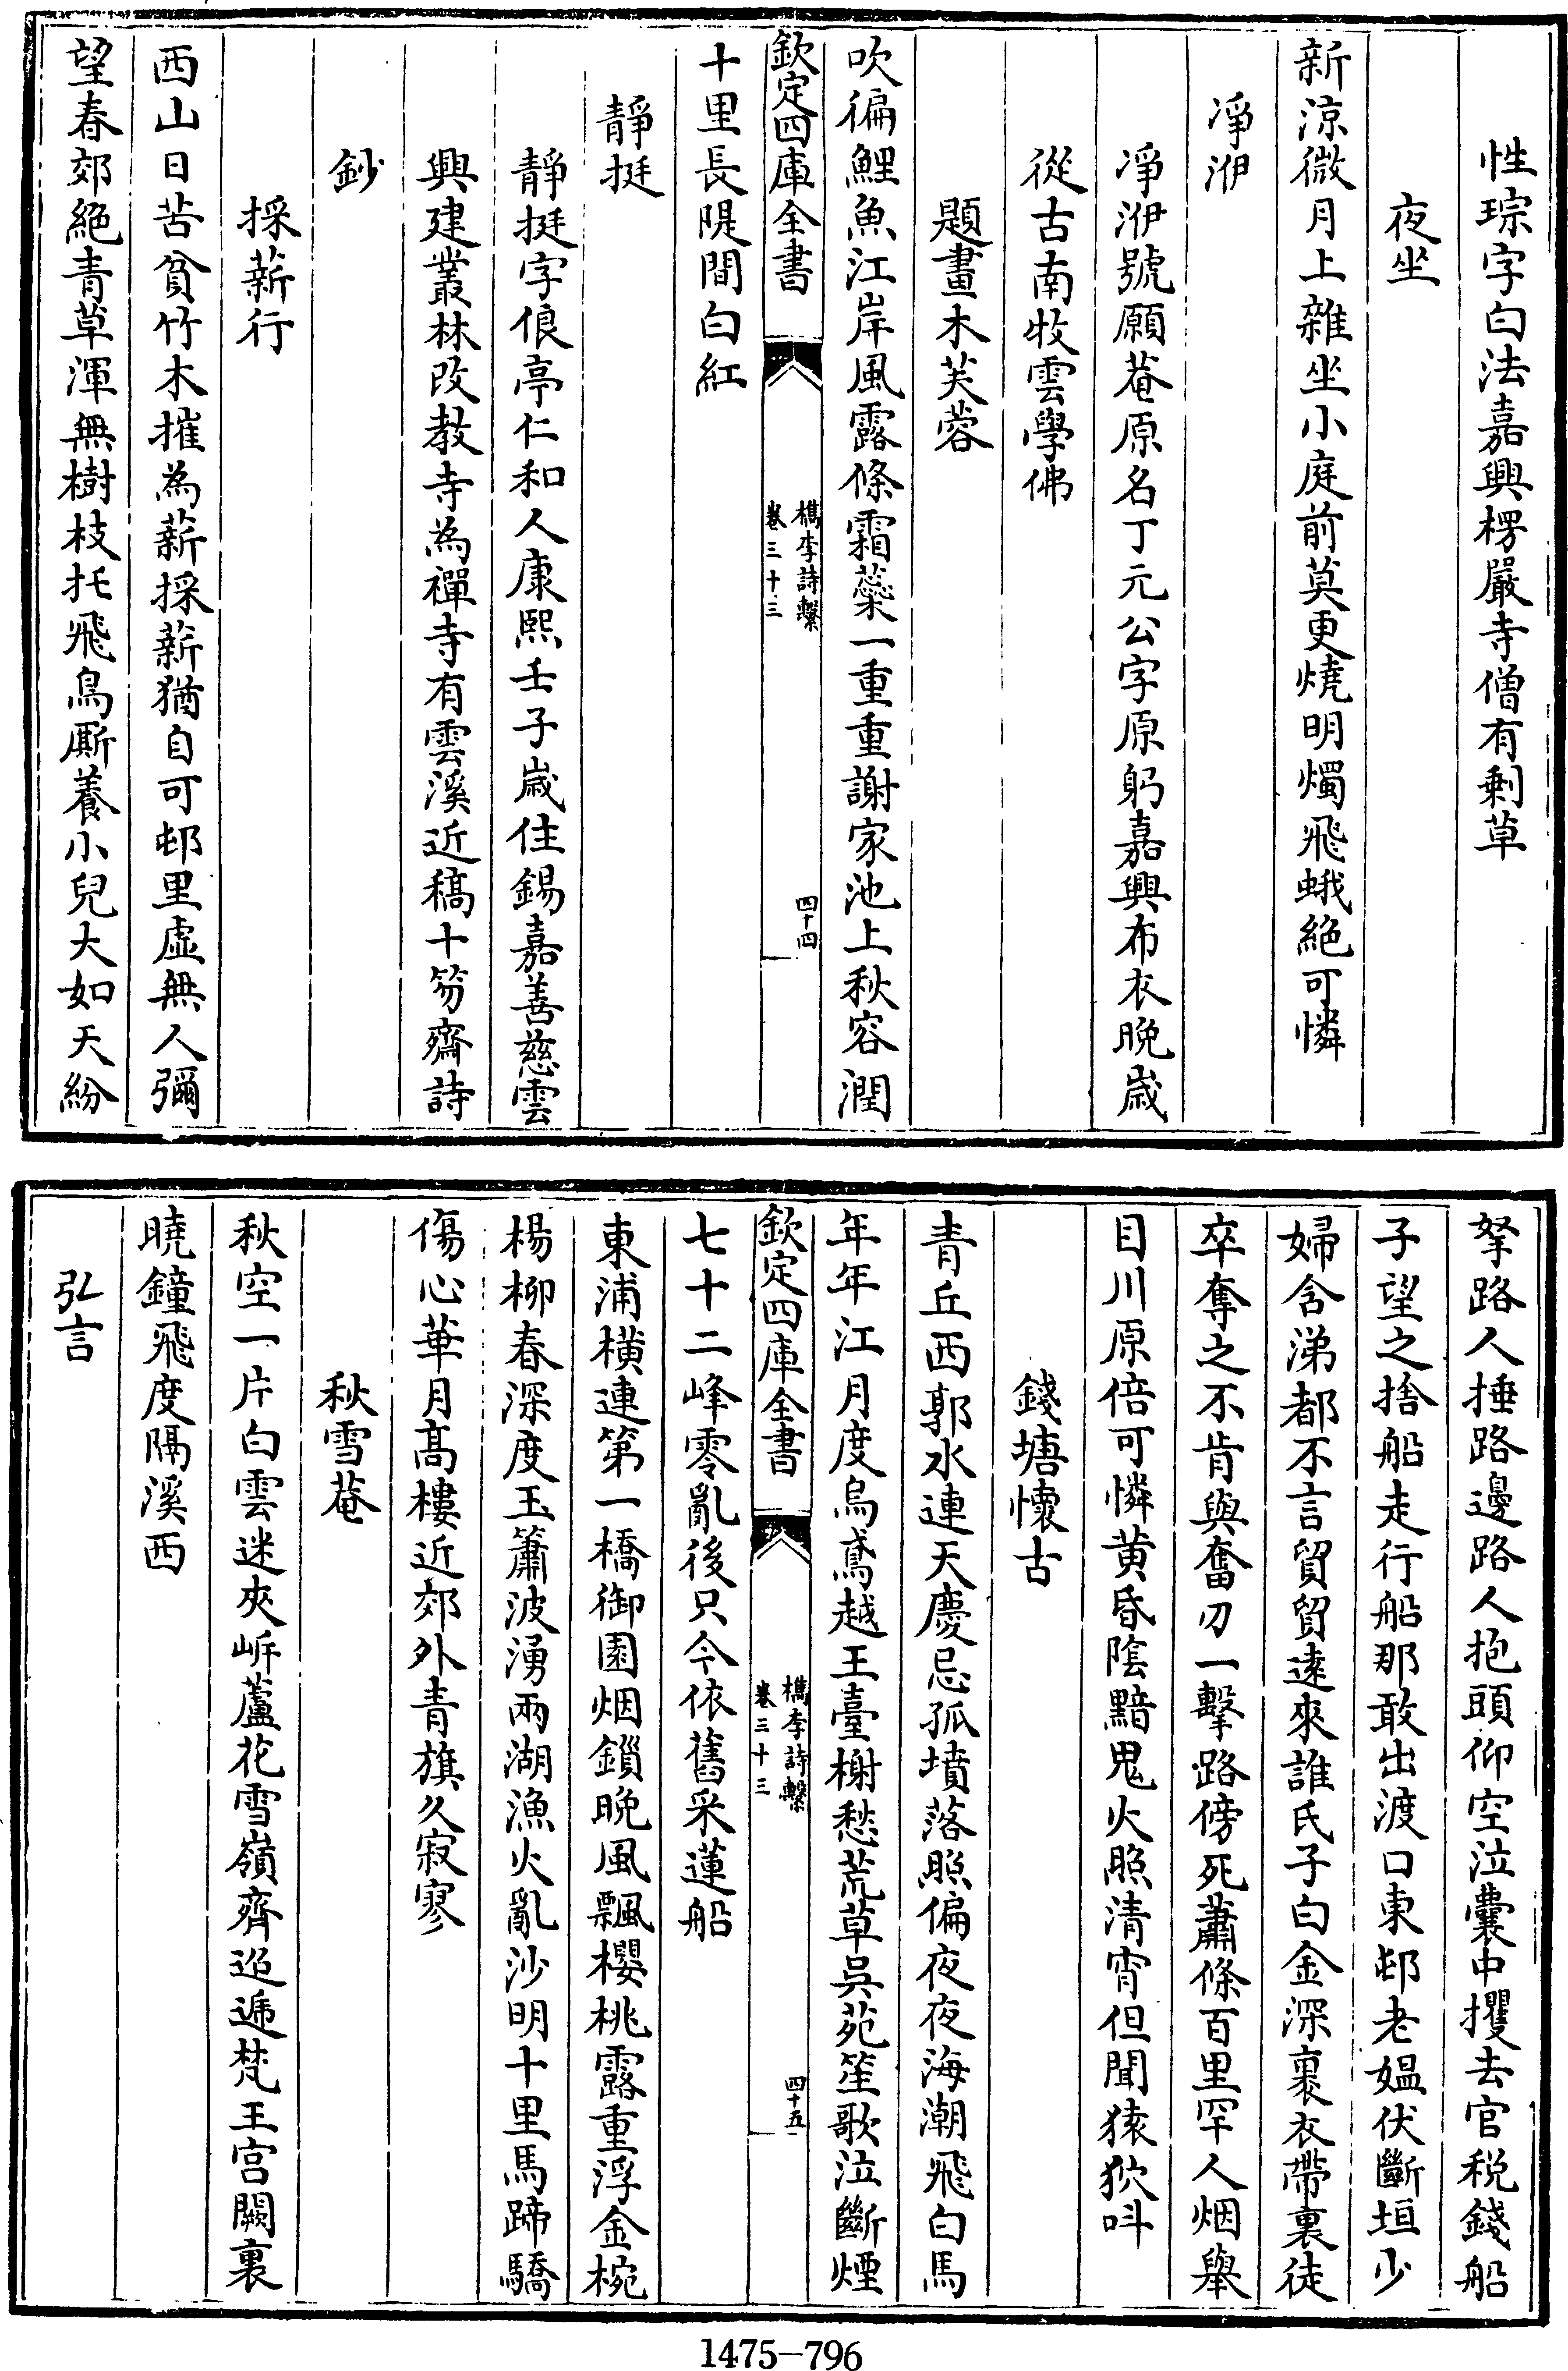 性琮字白法嘉興楞嚴寺僧有剩草
夜坐
新涼微月上雜坐小庭前莫更燒明燭飛蛾絕可憐
凈洢
凈洢號願菴原名丁元公字原躬嘉興布衣晚嵗
從古南牧雲學佛
題畫木芙蓉
吹徧鯉魚江岸風露條霜蘂一重重謝家池上秋容潤
欽定四庫全書
檇李詩繫
卷三十三
四十四
十里長隄間白紅
靜挺
靜挺字俍亭仁和人康熙壬子嵗住錫嘉善慈雲
興建叢林改教寺為禪寺有雲溪近稿十笏齋詩
鈔
採薪行
西山日苦貧竹木摧為薪採薪猶自可邨里虛無人彌
望春郊絕青草渾無樹枝托飛鳥厮養小兒大如天紛
拏路人捶路邊路人抱頭仰空泣囊中攫去官稅錢船
子望之捨船走行船那敢出渡口東邨老媼伏斷垣少
婦含涕都不言貿貿逺來誰氏子白金深裹衣帶裏徒
卒奪之不肯與奮刀一擊路傍死蕭條百里罕人烟舉
目川原倍可憐黄昏陰黯鬼火照清宵但聞猿狖呌
錢塘懷古
青丘西郭水連天慶忌孤墳落照偏夜夜海潮飛白馬
年年江月度烏鳶越王臺榭愁荒草吳苑笙歌泣斷煙
欽定四庫全書
檇李詩繫
卷三十三
四十五
七十二峰零亂後只今依舊采蓮船
東浦橫連第一橋御園烟鎖晚風飄櫻桃露重浮金椀
楊柳春深度玉簫波湧兩湖漁火亂沙明十里馬蹄驕
傷心華月髙樓近郊外青旗久寂寥
秋雪菴
秋空一片白雲迷夾岍蘆花雪嶺齊迢遞梵王宫闕裏
曉鐘飛度隔溪西
弘言
1475-796